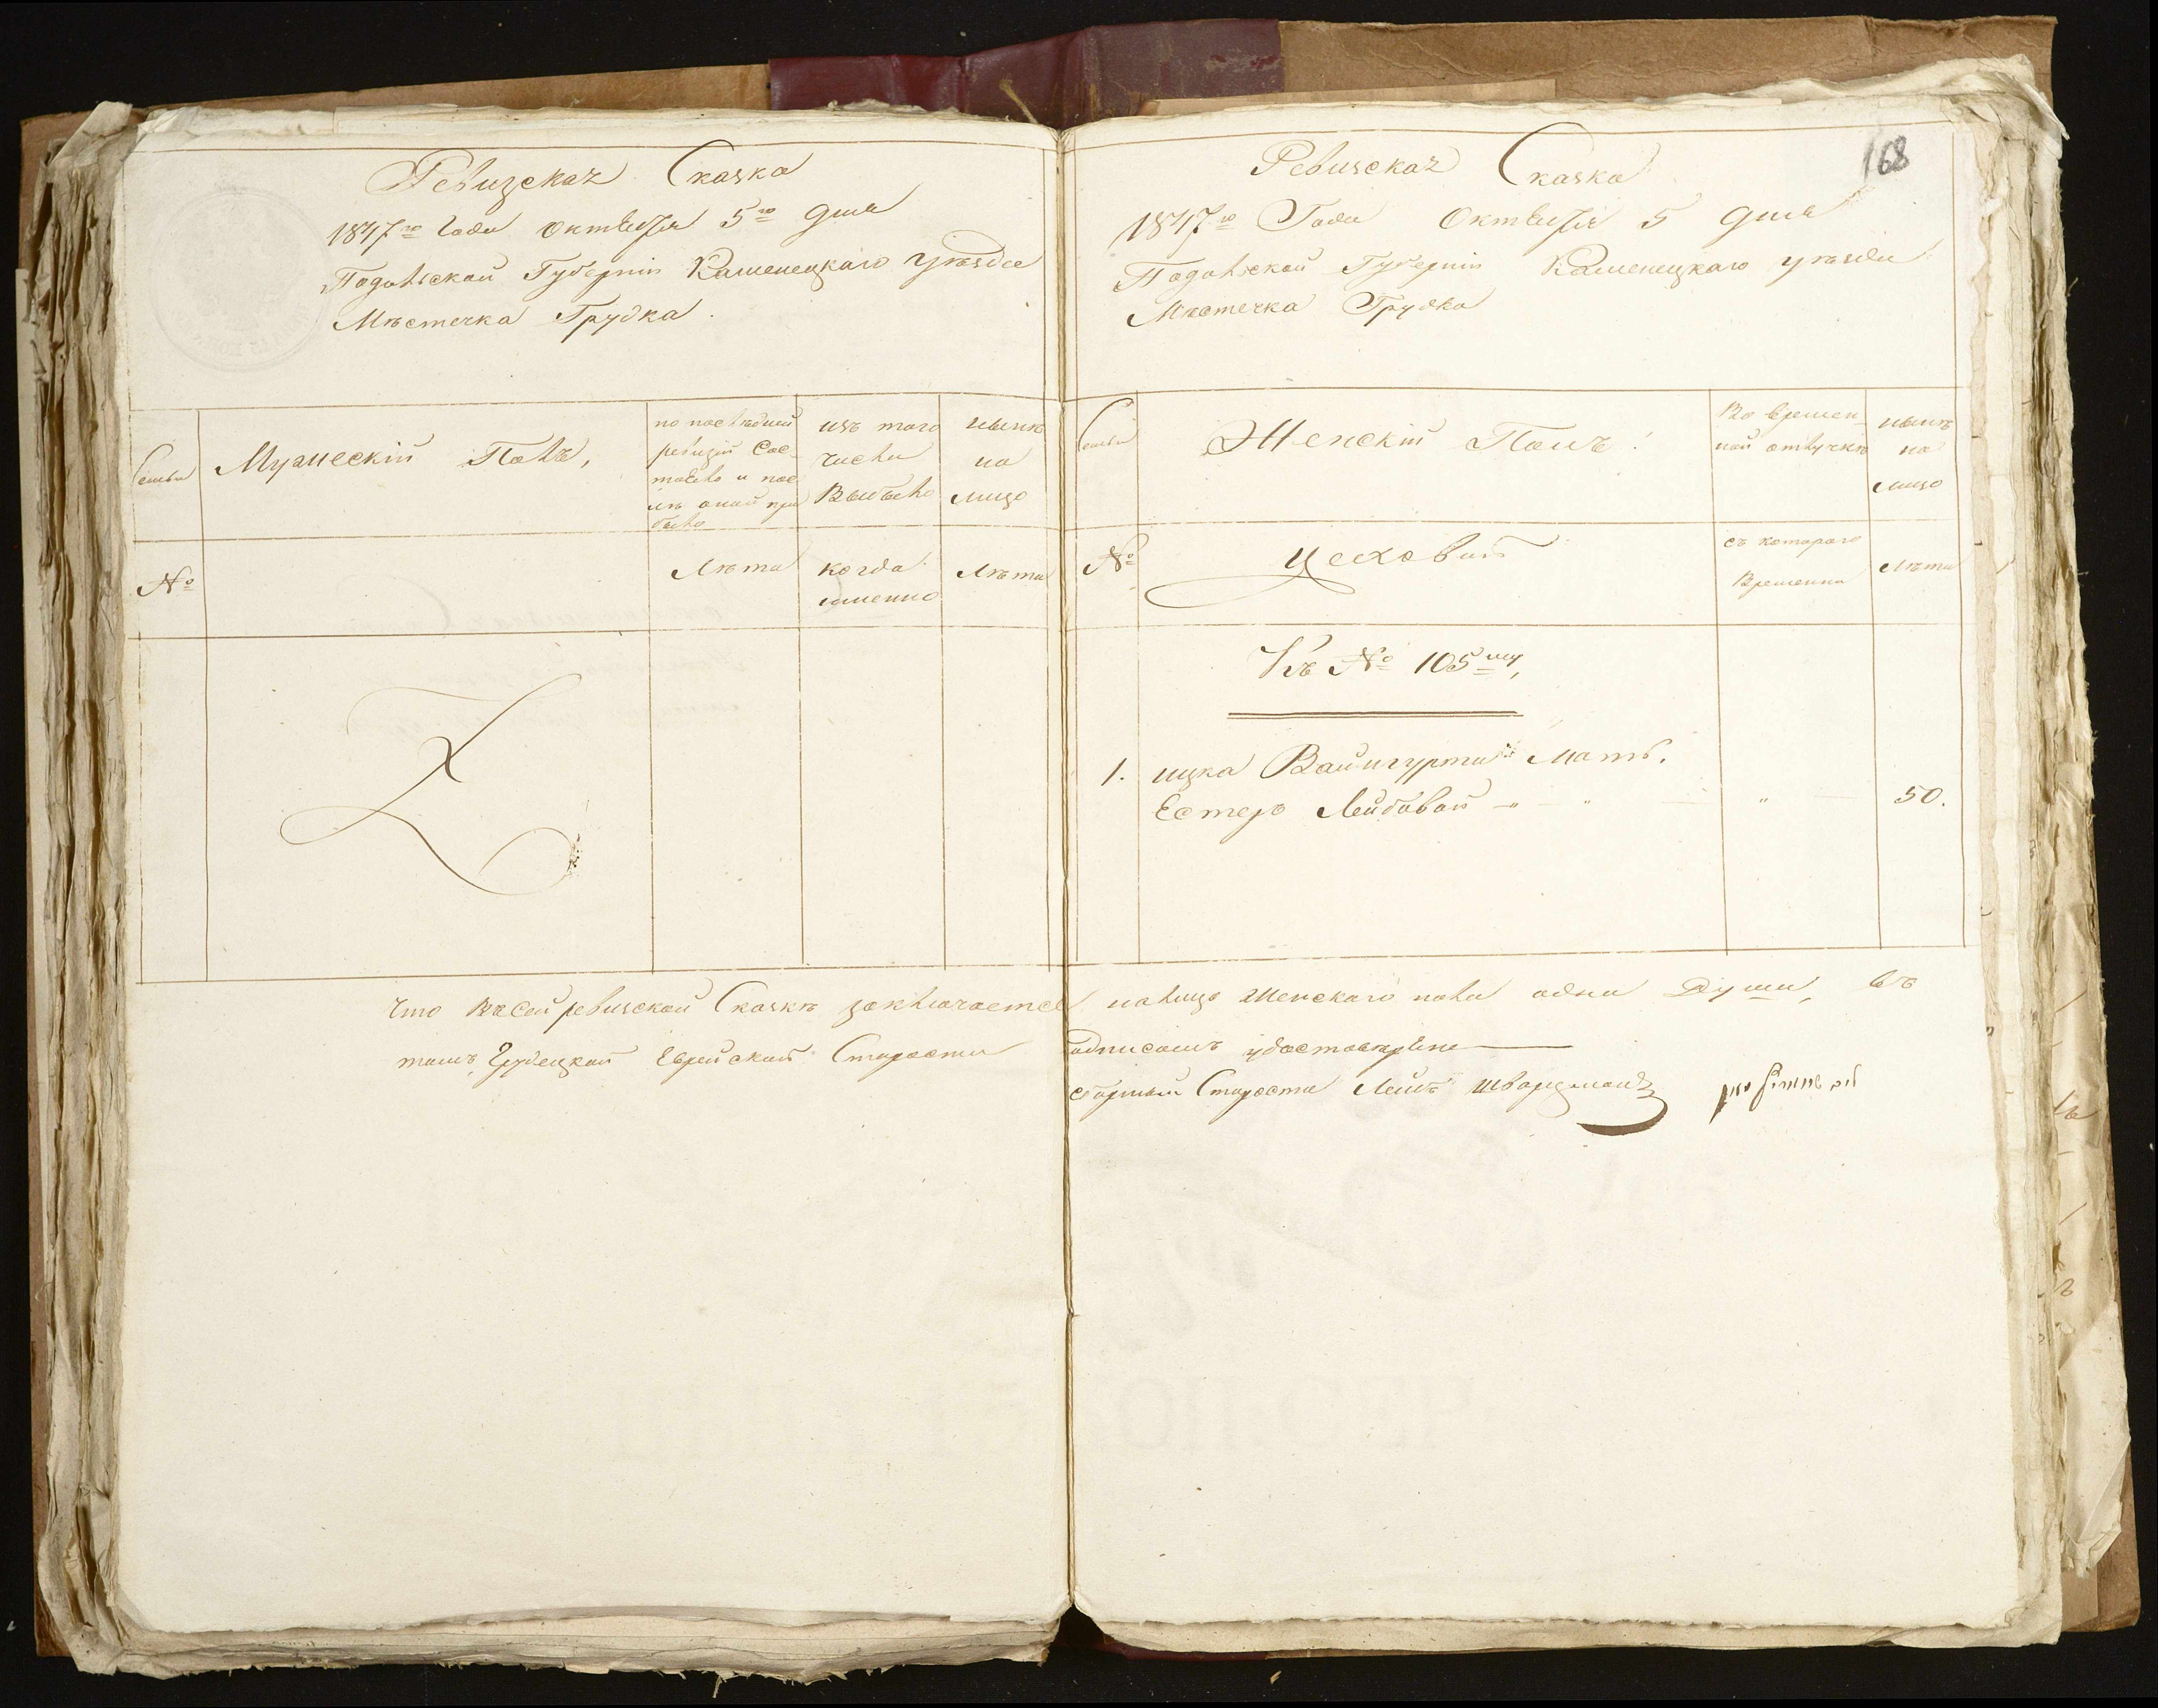 Ревизская Сказка
1847го Года Октября 5го дня
Подольской Губерніи Каменецкаго Уѣзда
Мѣстечка Грудка.
Семьи
Мужескій Полъ,
по послѣдней
ревизіи Сос-
тояло и пос
лѣ оной при
было
изъ того
числа
Выбыло
нынѣ
на
лицо
№
Лѣта
когда
именно
Лѣта
168
Ревизская Сказка
1847го Года Октября 5 дня
Подольской Губерніи Каменецкаго уѣзда
Мѣстечка Грудка
Семьи
Женскій Полъ.
Во времен-
ной отлучкѣ
нынѣ
на
лицо
№
Цеховые
съ котораго
Времени
Лѣта
Къ № 105му,
1. ицка Вайнгурта Мать.
Естеръ Лейбовой - " - " 50.
что въ сей ревизской Сказкѣ заключается на лицо Женскаго пола одна Душа, въ
томъ Грудецкой Еврейской Староста подписомъ удостовѣряю
сборный Староста Лейбъ Шварцманъ